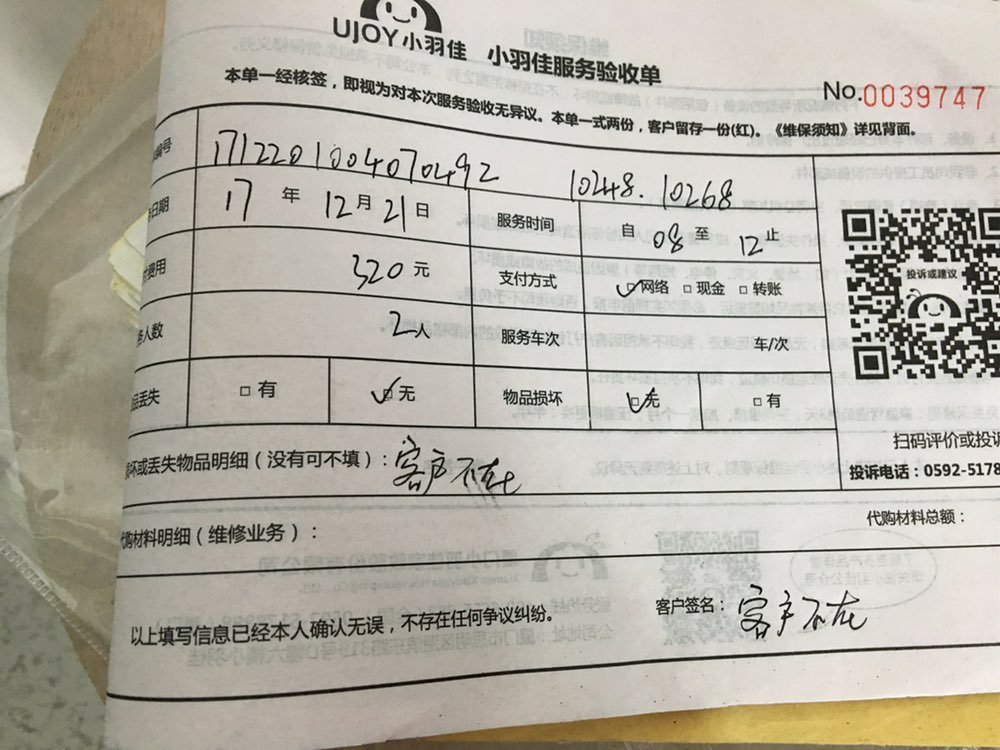 UJOY小羽佳 小羽佳服务验收单
本单一经核签，即视为对本次服务验收无异议。本单一式两份，客户留存一份(红)。《维保须知》详见背面。
No.0039747
编号 1712201004070492 10248. 10268
日期 17 年 12 月 21 日 服务时间 自 08 至 12 止
费用 320 元 支付方式 ☑网络 □现金 □转账
人数 2人 服务车次 车/次
丢失 □有 ☑无 物品损坏 ☑无 □有
投诉或建议
扫码评价或投诉
投诉电话：0592-5178
坏或丢失物品明细（没有可不填）：客户不在
代购材料明细（维修业务）： 代购材料总额：
以上填写信息已经本人确认无误，不存在任何争议纠纷。 客户签名：客户不在